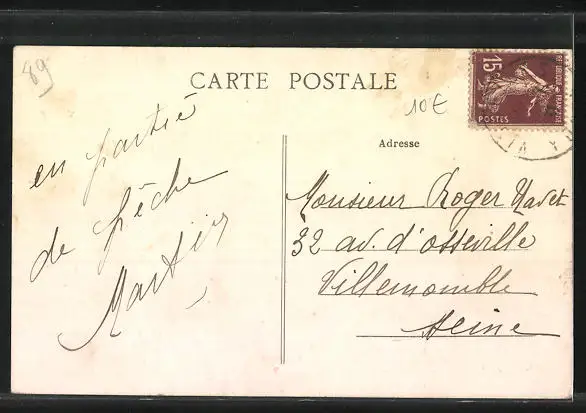 89
CARTE POSTALE
10€
15c
REPUBLIQUE FRANÇAISE
POSTES
Adresse
en partie
de pêche
Martin
Monsieur Roger Navet
32 av. d'osseville
Villemomble
Seine